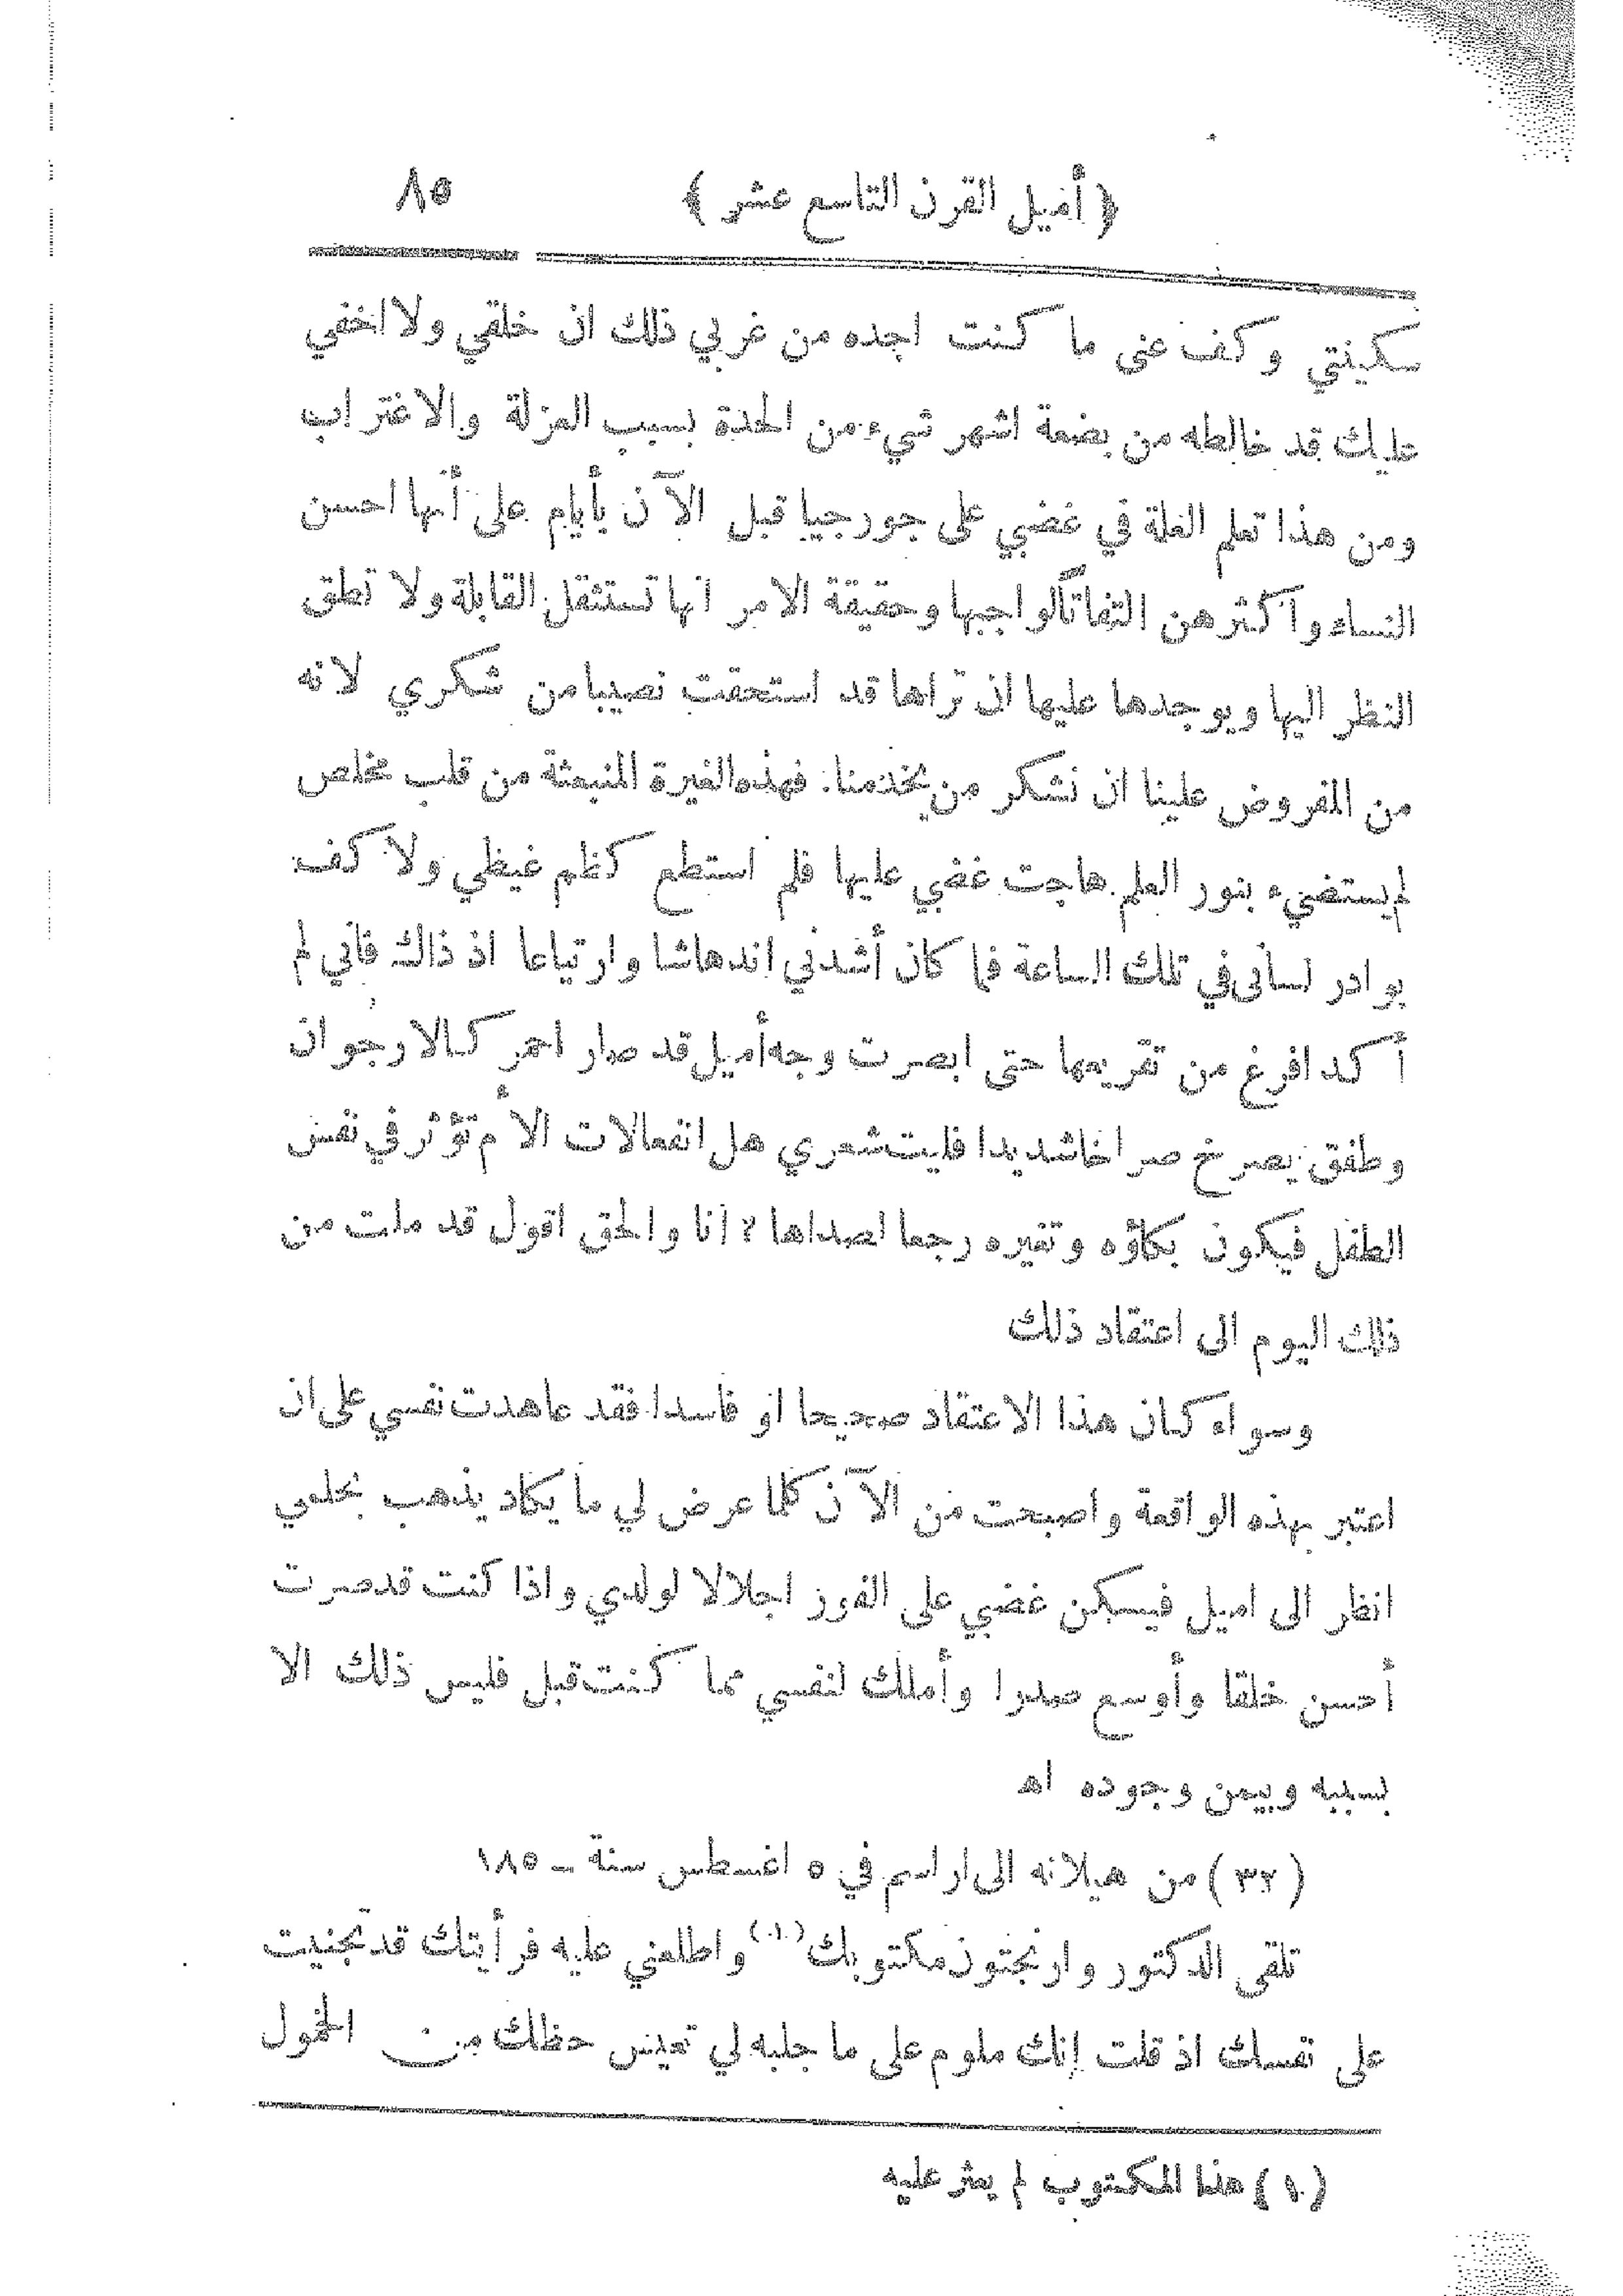 ﴿ أميل القرن التاسع عشر ﴾ ٨٥
سكينتي وكف عنى ما كنت اجده من غربي ذلك ان خلقي ولا اخفي
عليك قد خالطه من بضعة اشهر شيء من الحدة بسبب العزلة والاغتراب
ومن هذا تعلم العلة في غضبي على جورجيا قبل الآن بأيام على أنها احسن
النساء وأكثرهن التفاتًا لواجبها وحقيقة الامر انها تستثقل القابلة ولا تطق
النظر اليها ويوجدها عليها ان تراها قد استحقت نصيبا من شكري لانه
من المفروض علينا ان نشكر من يخدمنا: فهذه الغيرة المنبعثة من قلب مخلص
لم يستضيء بنور العلم هاجت غضبي عليها فلم استطع كظم غيظي ولا كف
بوادر لسانى في تلك الساعة فما كان أشدني اندهاشا وارتياعا اذ ذاك فاني لم
أكد افرغ من تقريعها حتى ابصرت وجه أميل قد صار احمر كالارجوان
وطفق يصرخ صراخا شديدا فليت شعري هل انفعالات الأم تؤثر في نفس
الطفل فيكون بكاؤه وتغيره رجعا لصداها ؟ انا والحق اقول قد ملت من
ذلك اليوم الى اعتقاد ذلك
وسواء كان هذا الاعتقاد صحيحا او فاسدا فقد عاهدت نفسي على ان
اعتبر بهذه الواقعة واصبحت من الآن كلما عرض لي ما يكاد يذهب بحلمي
انظر الى اميل فيسكن غضبي على الفور اجلالا لولدي واذا كنت قد صرت
أحسن خلقا وأوسع صدرا وأملك لنفسي مما كنت قبل فليس ذلك الا
بسببه وبيمن وجوده اه
(٣٢) من هيلانه الى اراسم في ٥ اغسطس سنة ــ ١٨٥
تلقى الدكتور وارنجتون مكتوبك (١) واطلعني عليه فرأيتك قد تجنيت
على نفسك اذ قلت إنك ملوم على ما جلبه لي تعيس حظك من الخمول
(١) هذا المكتوب لم يعثر عليه